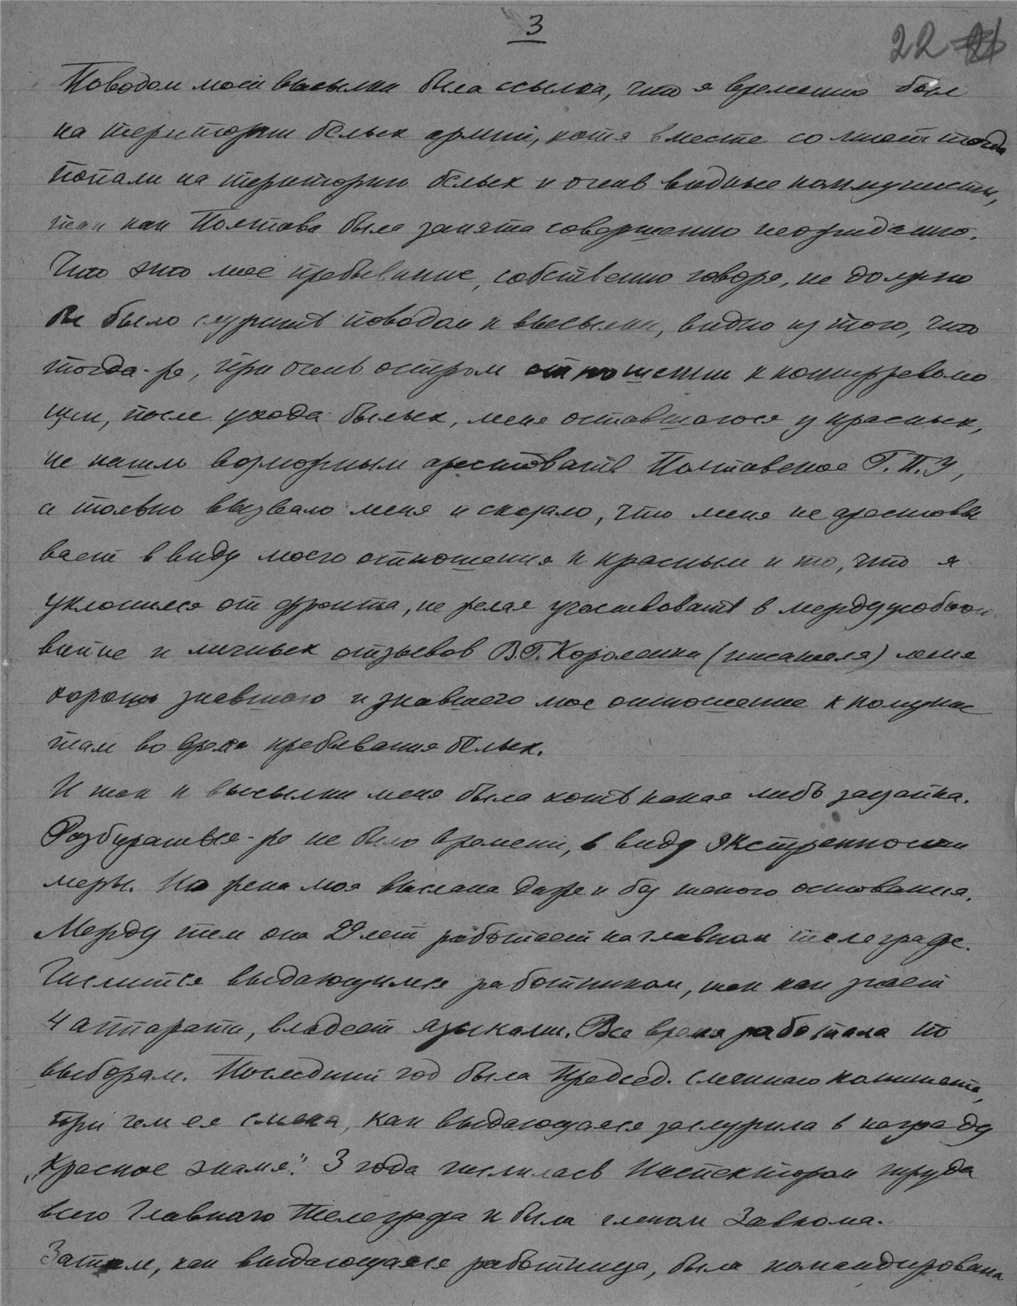 3
22
Поводом моей высылки была ссылка, что я временно был
на територии белых армий, хотя вместе со мной тогда
попали на територии белых и очень видные коммунисты,
так как Полтава была занята совершенно неожиданно.
Что это мое пребывание, собственно говоря, не должно
бы было служить поводом к высылки, видно из того, что
тогда-же, при очень остром отношении к контрреволю
ции, после ухода белых, меня оставшагося у красных,
не нашло возможным арестовать Полтавское Г.П.У,
а только вызвало меня и сказало, что меня не арестовы
вает в виду моего отношения к красным и то, что я
уклонился от фронта, не желая участвовать в междуусобной
войне и личных отзывов В.Г. Короленки (писателя) меня
хорошо знавшаго и знавшего мое отношение к комунис
там во время пребывания белых.
И так к высылки меня была хоть какая либъ зацепка.
Разбираться-же не было времени, в виду экстренности
меры. Но жена моя выслана даже и без такого основания.
Между тем она 29 лет работает на главном телеграфе.
Числится выдающимся работником, так как знает
4 аппарата, владеет языками. Все время работала по
выборам. Последний год была Председ. сменнаго комитета,
при чем ея смена, как выдающаяся заслужила в награду
„Красное знамя". 3 года числилась Инспектором труда
всего Главнаго Телеграфа и была членом Завкома.
Затем, как выдающаяся работница, была командирована